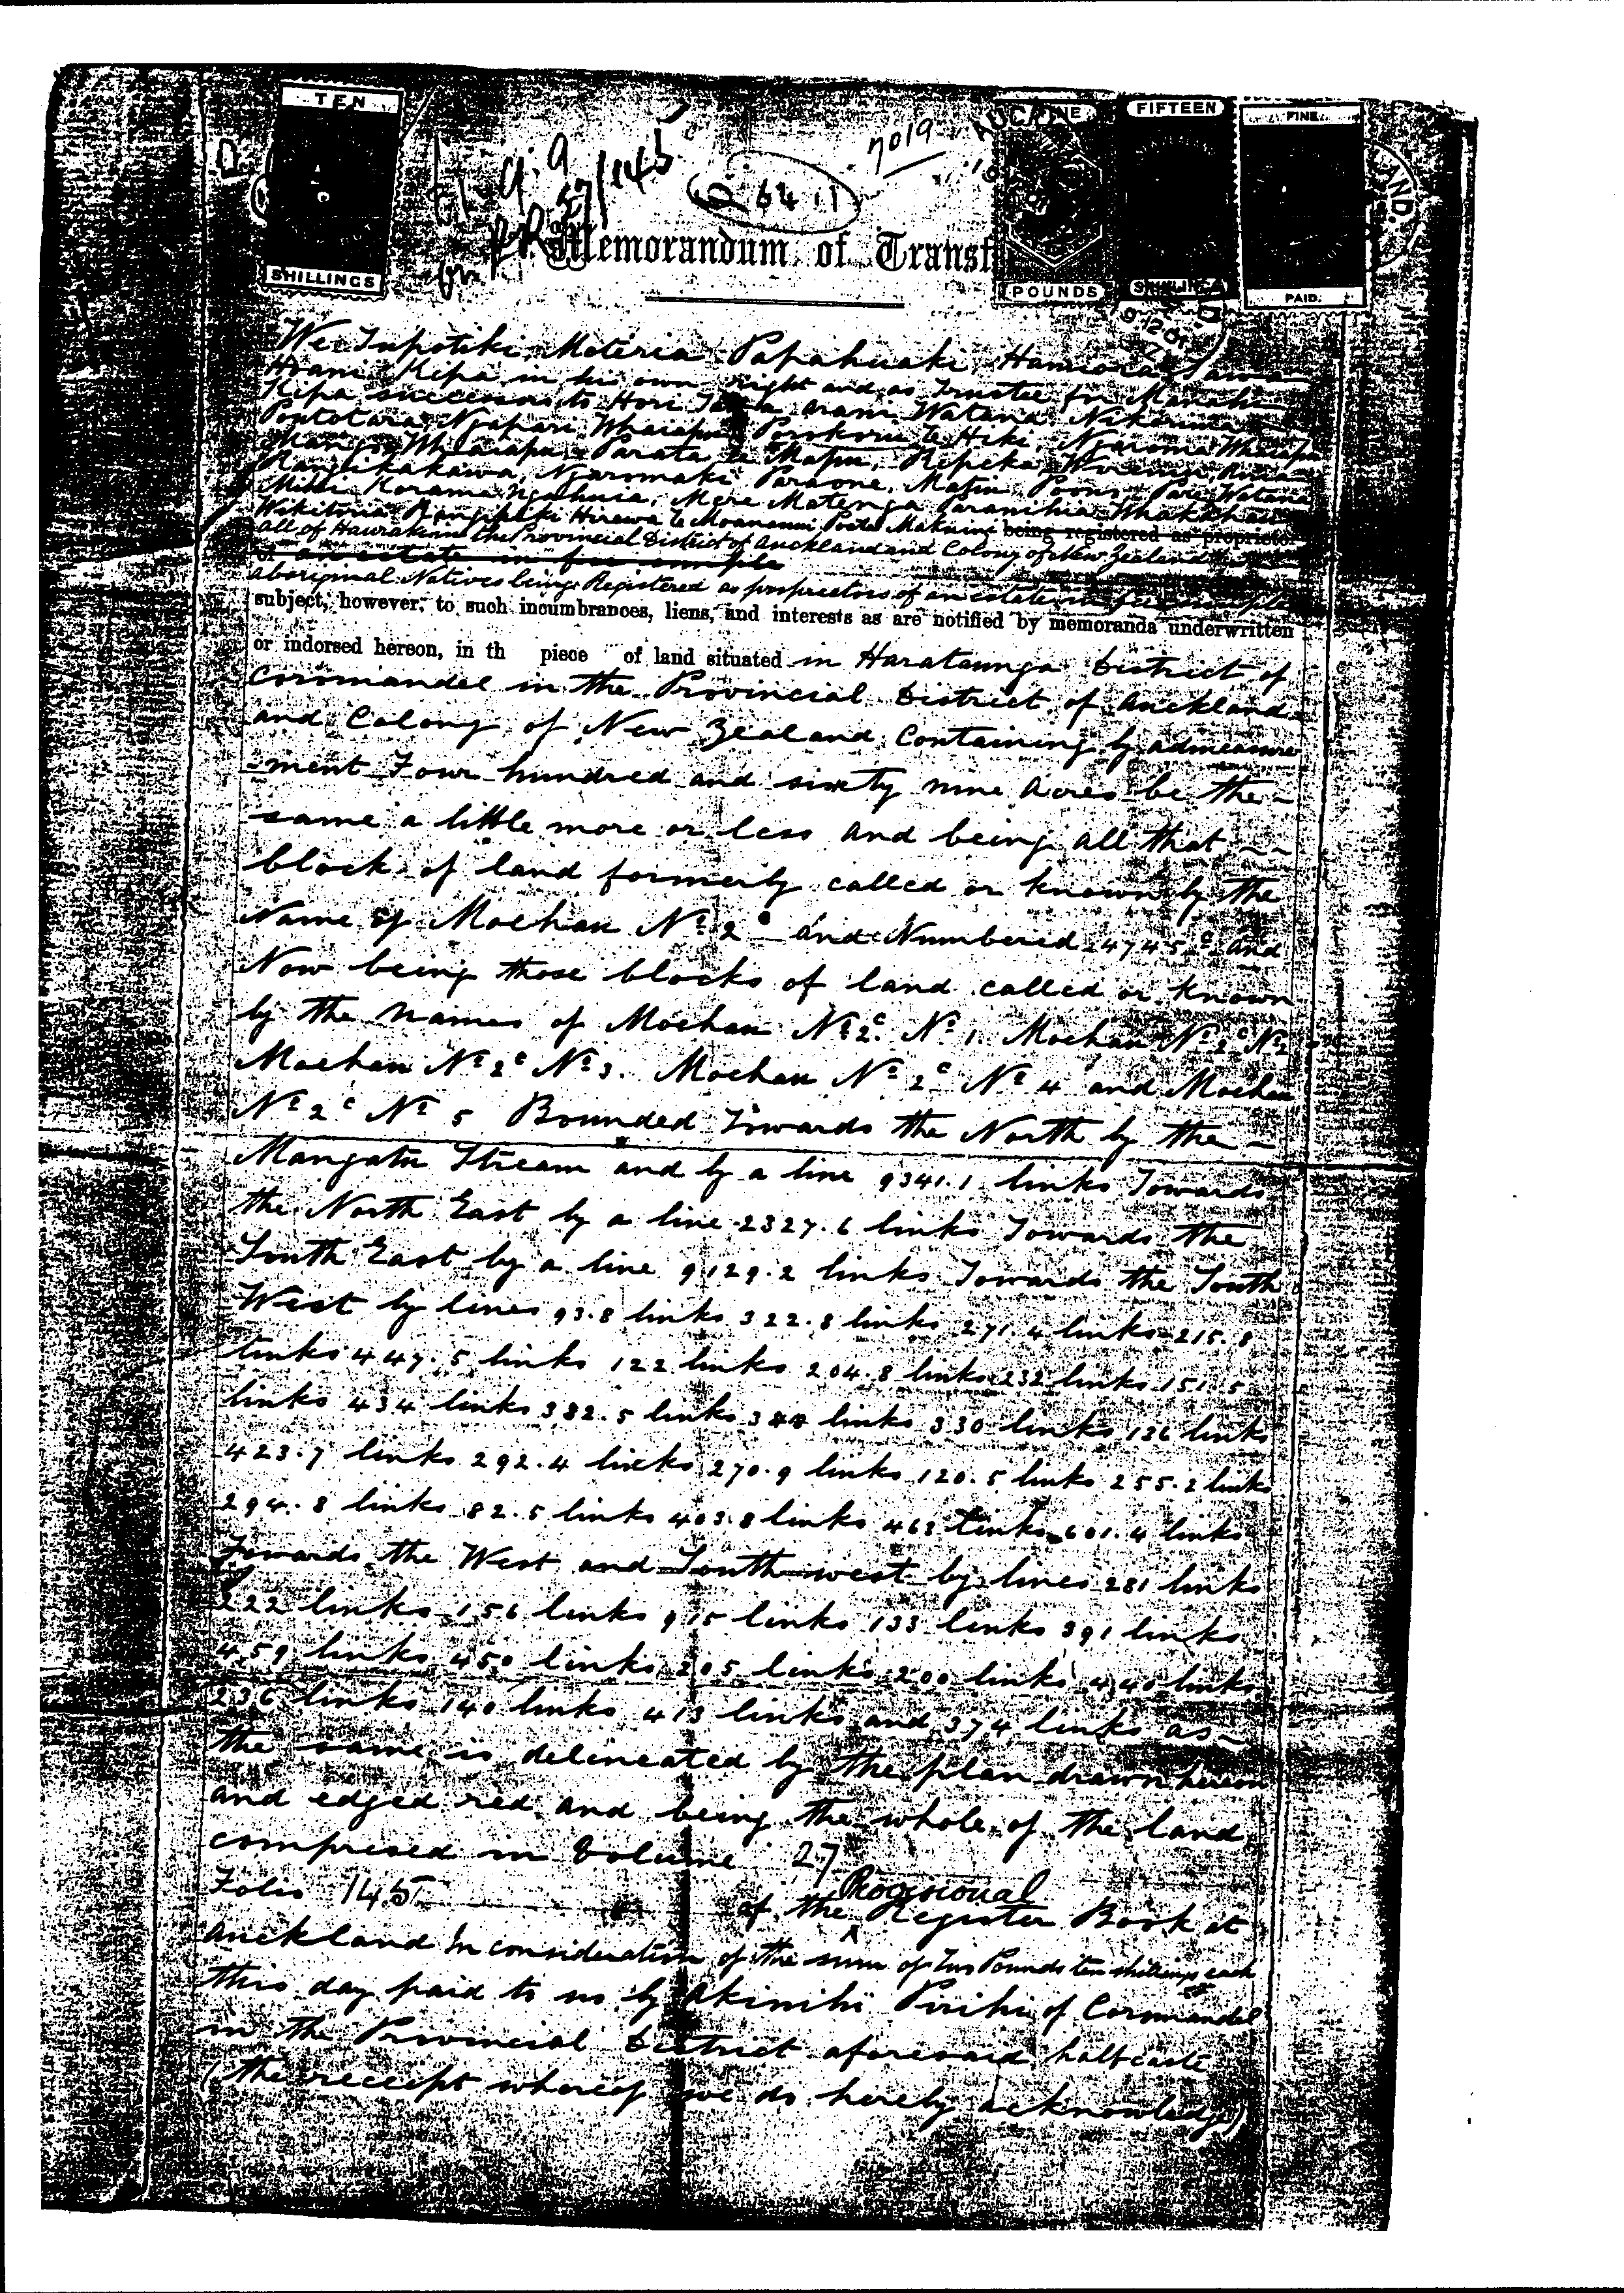 TEN
SHILLINGS
7019
FIFTEEN
FINE
POUNDS
PAID.
AND.
Memorandum of Transf
We Tupotiki, Materia Papahuaki, Hamiora
Hoani Kepa in his own right and as Trustee for
Kepa successor to Hori Watana
Ngapari Te Hiki, Ngaroma Wharapu
Parata Te Mapu, Repeka
Rangikakawa, Ngaromaki Paraone, Poono Pare Watana
Korama Ngahuia, Mere Matenga
Hirawa Te Moananui being registered as proprietor
all of Hauraki in the Provincial District of Auckland and Colony of New Zealand
an estate in fee simple
aboriginal Natives being Registered as proprietors of an estate in fee simple
subject, however, to such incumbrances, liens, and interests as are notified by memoranda underwritten
or indorsed hereon, in th piece of land situated in Harataunga District of
Coromandel in the Provincial District of Auckland
and Colony of New Zealand Containing by admeasure
-ment Four hundred and sixty nine Acres be the
same a little more or less and being all that
block of land formerly called or known by the
Name of Moehau No 2c and Numbered 4745c and
Now being those blocks of land called or known
by the Names of Moehau No 2c No 1. Moehau No 2c No 2
Moehau No 2c No 3. Moehau No 2c No 4 and Moehau
No 2c No 5 Bounded Towards the North by the
Mangatu Stream and by a line 9341.1 links Towards
the North East by a line 2327.6 links Towards the
South East by a line 9129.2 links Towards the South
West by lines 93.8 links 322.8 links 271.4 links 215.8
links 447.5 links 122 links 204.8 links 232 links 151.5
links 434 links 382.5 links 344 links 330 links 136 links
423.7 links 292.4 links 270.9 links 120.5 links 255.2 links
294.8 links 82.5 links 403.8 links 463 links 601.4 links
Towards the West and South west by lines 281 links
222 links 156 links 915 links 133 links 391 links
459 links 450 links 205 links 200 links 440 links
236 links 140 links 413 links and 374 links as
the same is delineated by the plan drawn hereon
and edged red and being the whole of the land
comprised in Volume 27
Folio 145 of the Provisional Register Book at
Auckland In consideration of the sum of Two Pounds ten shillings each
this day paid to us by Akinihi Pirihi of Coromandel
in the Provincial District aforesaid half caste
(the receipt whereof we do hereby acknowledge)